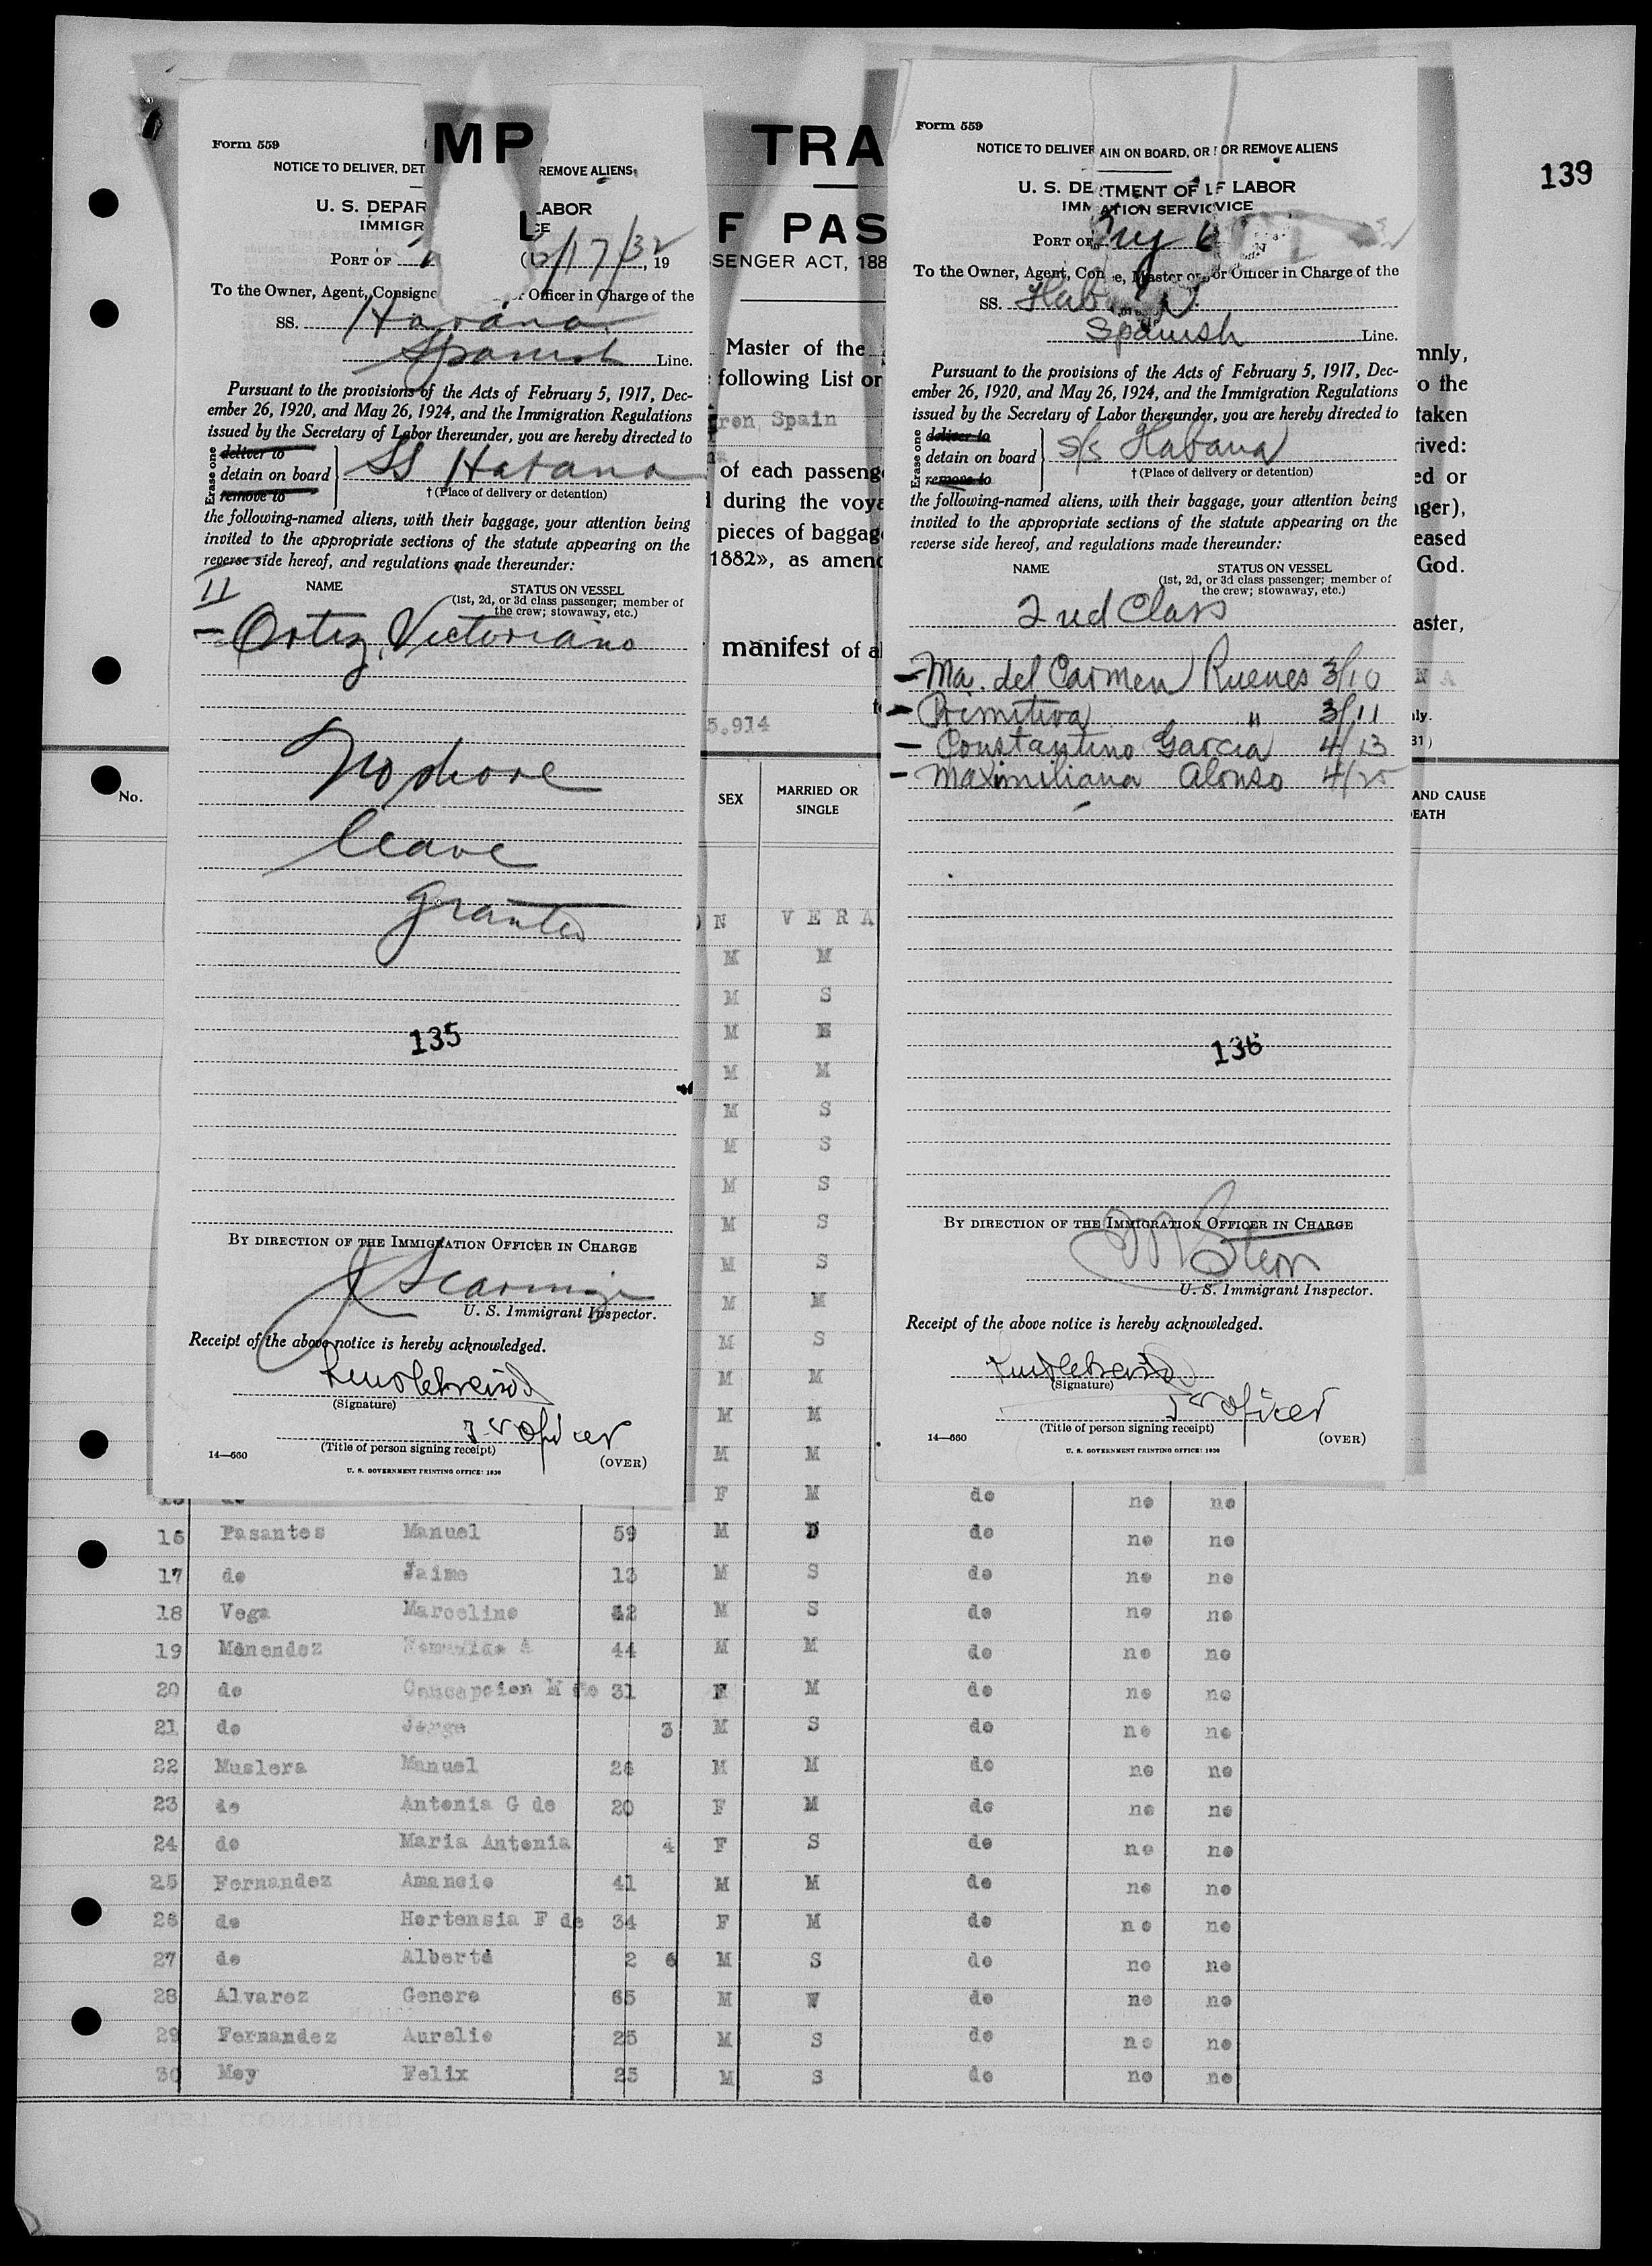 139
MP
TRA
F PAS
SENGER ACT, 188
Master of the
following List or
Spain
of each passeng
during the voya
pieces of baggag
1882», as amend
manifest of a
5.914
mnly,
o the
taken
rived:
ed or
ger),
eased
God.
aster,
N A
ly.
31)
AND CAUSE
EATH
No.
SEX
MARRIED OR
SINGLE
Form 559
NOTICE TO DELIVER, DET REMOVE ALIENS
U. S. DEPAR LABOR
IMMIGR CE
PORT OF 12/17/32, 19
To the Owner, Agent, Consigne r Officer in Charge of the
SS. Havana
Spanish Line.
Pursuant to the provisions of the Acts of February 5, 1917, Dec-
ember 26, 1920, and May 26, 1924, and the Immigration Regulations
issued by the Secretary of Labor thereunder, you are hereby directed to
Erase one
deliver to
detain on board SS Habana
remove to
† (Place of delivery or detention)
the following-named aliens, with their baggage, your attention being
invited to the appropriate sections of the statute appearing on the
reverse side hereof, and regulations made thereunder:
II
NAME STATUS ON VESSEL
(1st, 2d, or 3d class passenger; member of
the crew; stowaway, etc.)
– Ortiz, Victoriano
No shore
leave
granted
135
BY DIRECTION OF THE IMMIGRATION OFFICER IN CHARGE
U. S. Immigrant Inspector.
Receipt of the above notice is hereby acknowledged.
(Signature)
3er Oficer
(Title of person signing receipt)
14—660
(OVER)
U. S. GOVERNMENT PRINTING OFFICE: 1930
Form 559
NOTICE TO DELIVER AIN ON BOARD, OR OR REMOVE ALIENS
U. S. DE TMENT OF LABOR
IMM ATION SERVICE
PORT OF
To the Owner, Agent, Con e, Master or or Officer in Charge of the
SS. Hab
Spanish Line.
Pursuant to the provisions of the Acts of February 5, 1917, Dec-
ember 26, 1920, and May 26, 1924, and the Immigration Regulations
issued by the Secretary of Labor thereunder, you are hereby directed to
Erase one
deliver to
detain on board s/s Habana
remove to
† (Place of delivery or detention)
the following-named aliens, with their baggage, your attention being
invited to the appropriate sections of the statute appearing on the
reverse side hereof, and regulations made thereunder:
NAME STATUS ON VESSEL
(1st, 2d, or 3d class passenger; member of
the crew; stowaway, etc.)
2nd Class
– Ma. del Carmen Ruenes 3/10
– Primitiva " 3/11
– Constantino Garcia 4/13
– Maximiliana Alonso 4/25
136
BY DIRECTION OF THE IMMIGRATION OFFICER IN CHARGE
U. S. Immigrant Inspector.
Receipt of the above notice is hereby acknowledged.
(Signature)
3er Oficer
(Title of person signing receipt)
14—660
(OVER)
U. S. GOVERNMENT PRINTING OFFICE: 1930
N V E R A
M M
M S
M
M M
M S
M S
M S
M S
M S
M M
M S
M M
M M
M M
15 do F M do no no
16 Pasantes Manuel 59 M D do no no
17 do Jaime 13 M S do no no
18 Vega Marcelino M S do no no
19 Menendez 44 M M do no no
20 do Concepcion M de 31 F M do no no
21 do Jorge 3 M S do no no
22 Muslera Manuel 26 M M do no no
23 do Antonia G de 20 F M do no no
24 do Maria Antonia 4 F S do no no
25 Fernandez Amancio 41 M M do no no
26 do Hortensia F de 34 F M do no no
27 do Alberto 2 6 M S do no no
28 Alvarez Genero 65 M W do no no
29 Fernandez Aurelio 25 M S do no no
30 Moy Felix 25 M S do no no